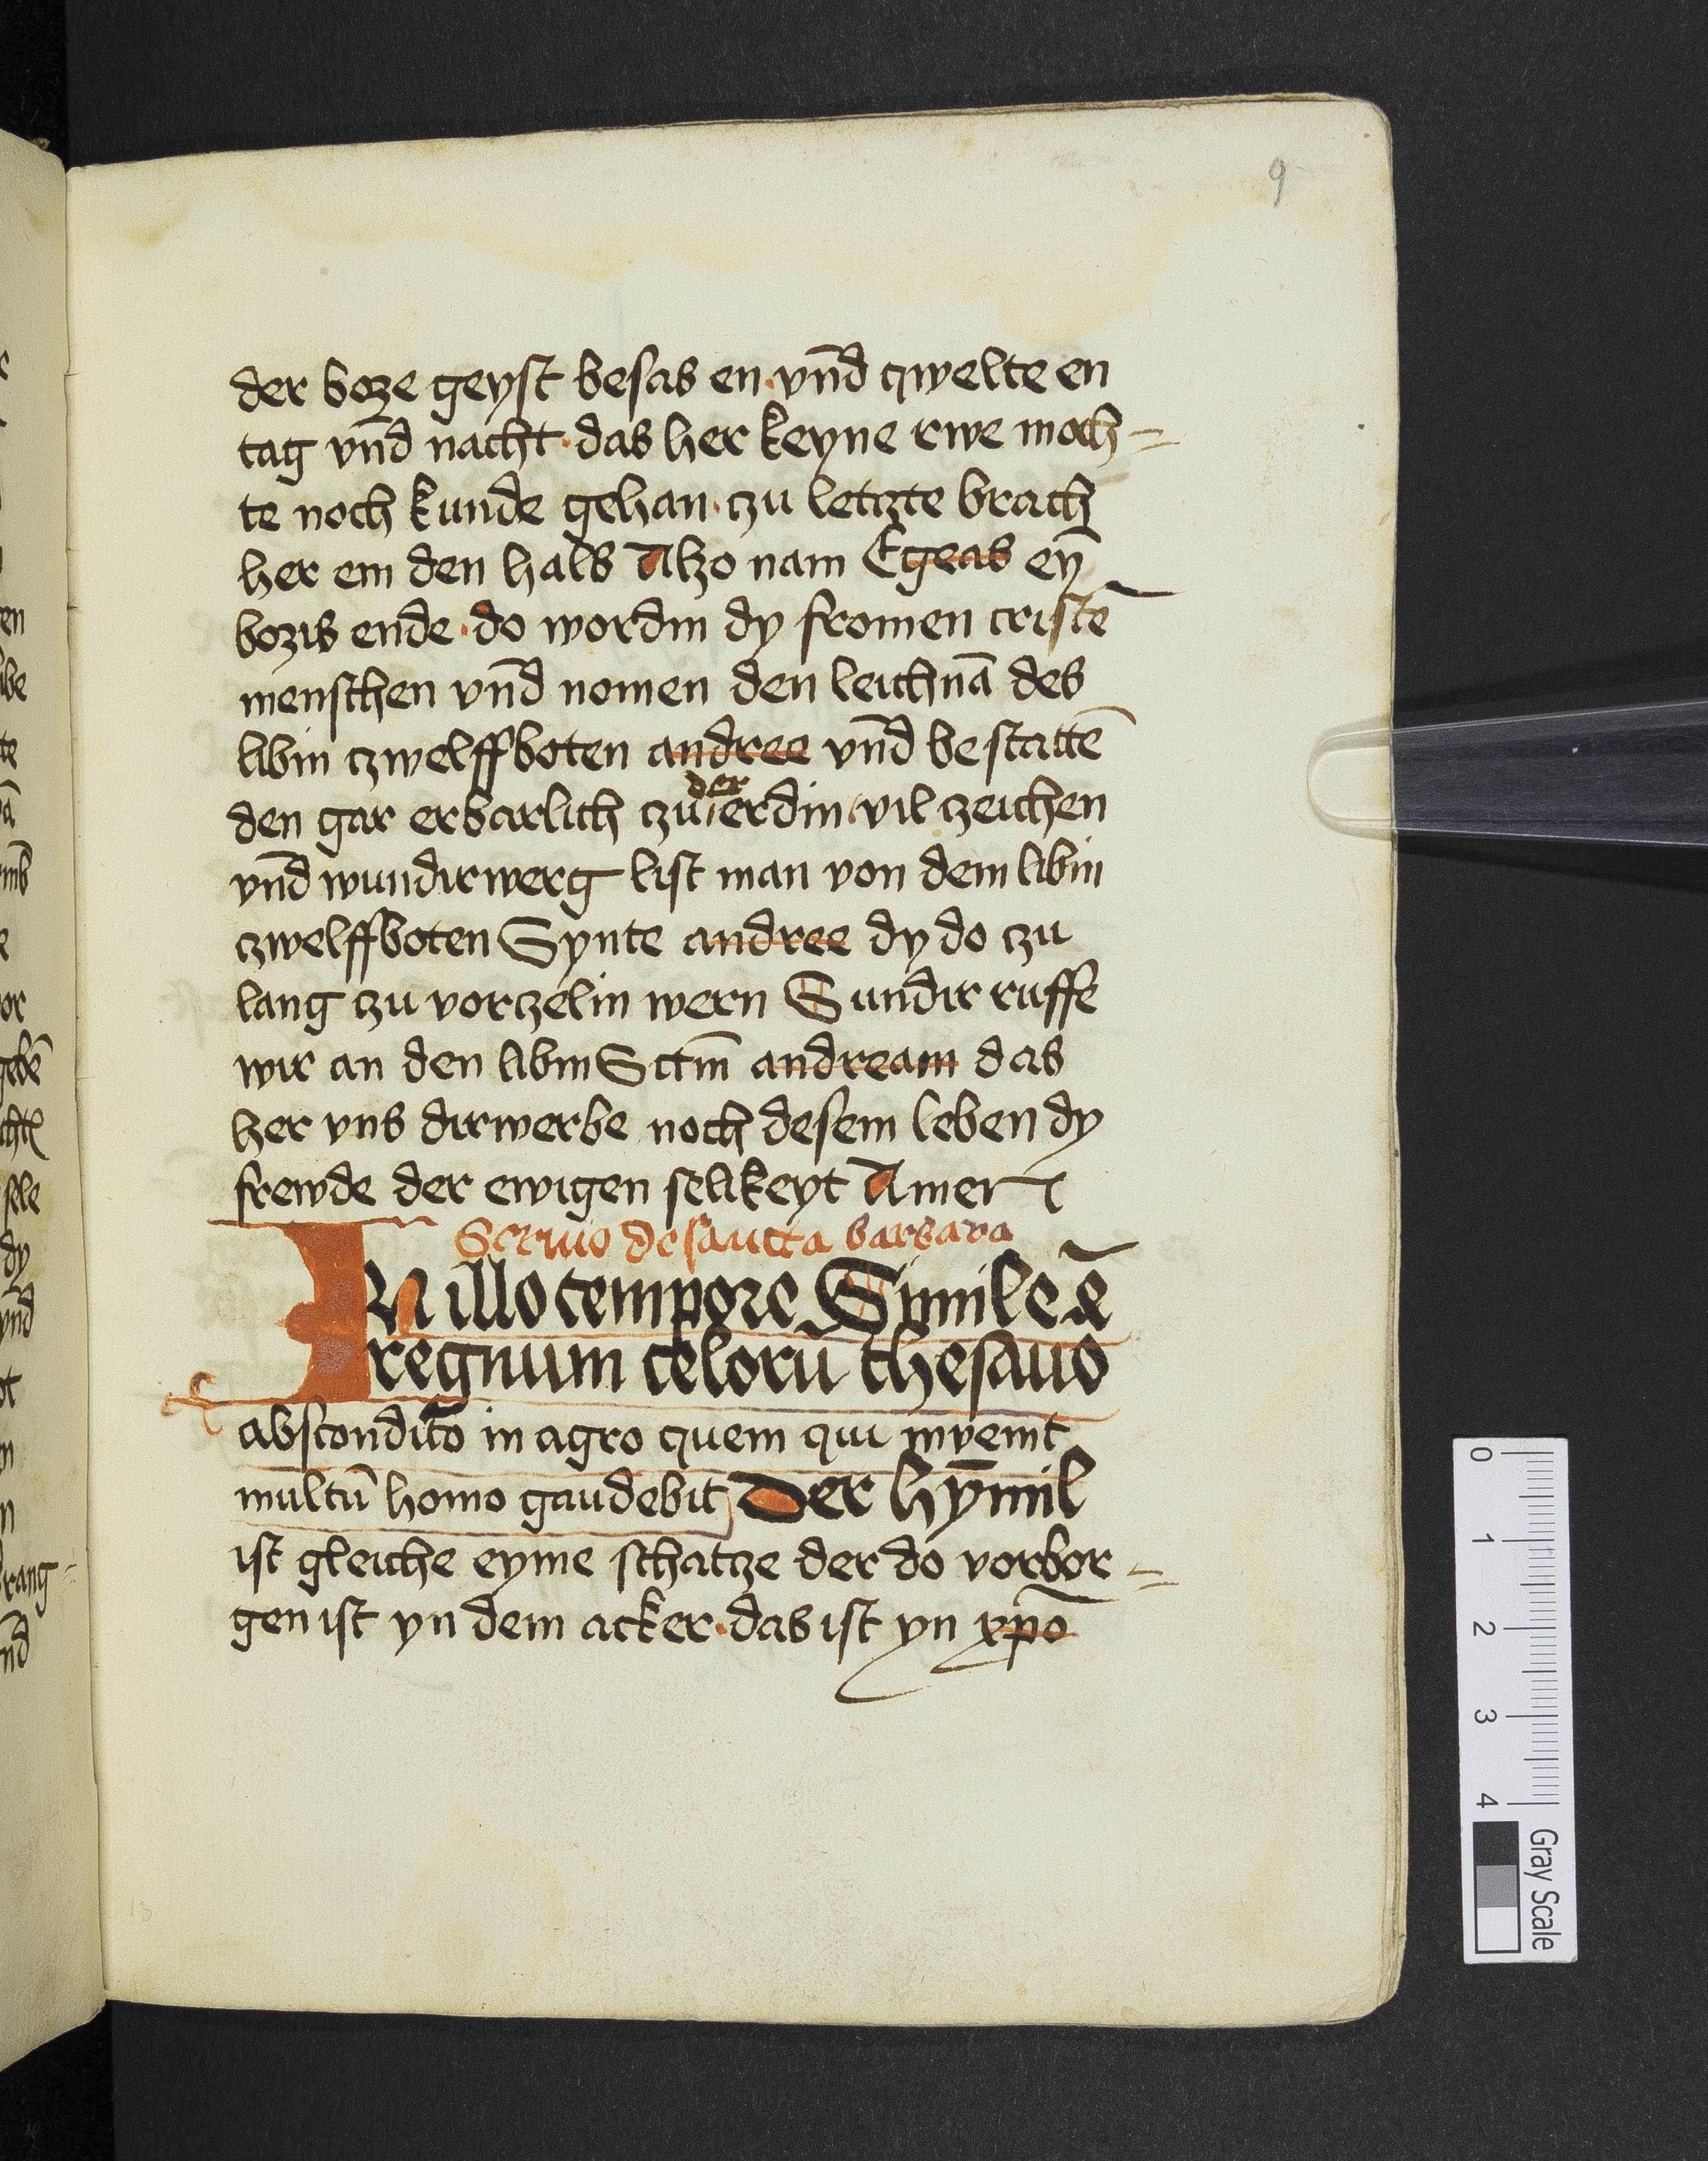 9
der boze geyst besas en · vn̄d qwelte en
tag vn̄d nacht · das her keyne rwe moch=
te noch kunde gehan · czu letczte brach
her em den hals Alzo nam Egeas eȳ
bozis ende · do wordin dy fromen cristē
menschen vn̄d nomen den leichnā des
libin czwelffboten andree vn̄d bestattē
der
den gar erbarlich czu ierdin · vil zeichen
vn̄d wundirwerg list man von dem libin
czwelffboten Synte andree dy do czu
lang czu vorzelin wern Sundir ruffē
wir an den libin Sctm̄ andream das
her vns dirwerbe noch desem leben dy
frewde der ewigen selikeyt Amen
Sermo de sancta barbara
IN illo tempore Simile ē
regnum celorū thesauo
abscondito in agro quem qui invenit
multū homo gaudebit Der hȳmil
ist gleiche eyme schatze der do vorbor=
gen ist yn dem acker · das ist yn xp̄o
0
1
2
3
4
Gray Scale